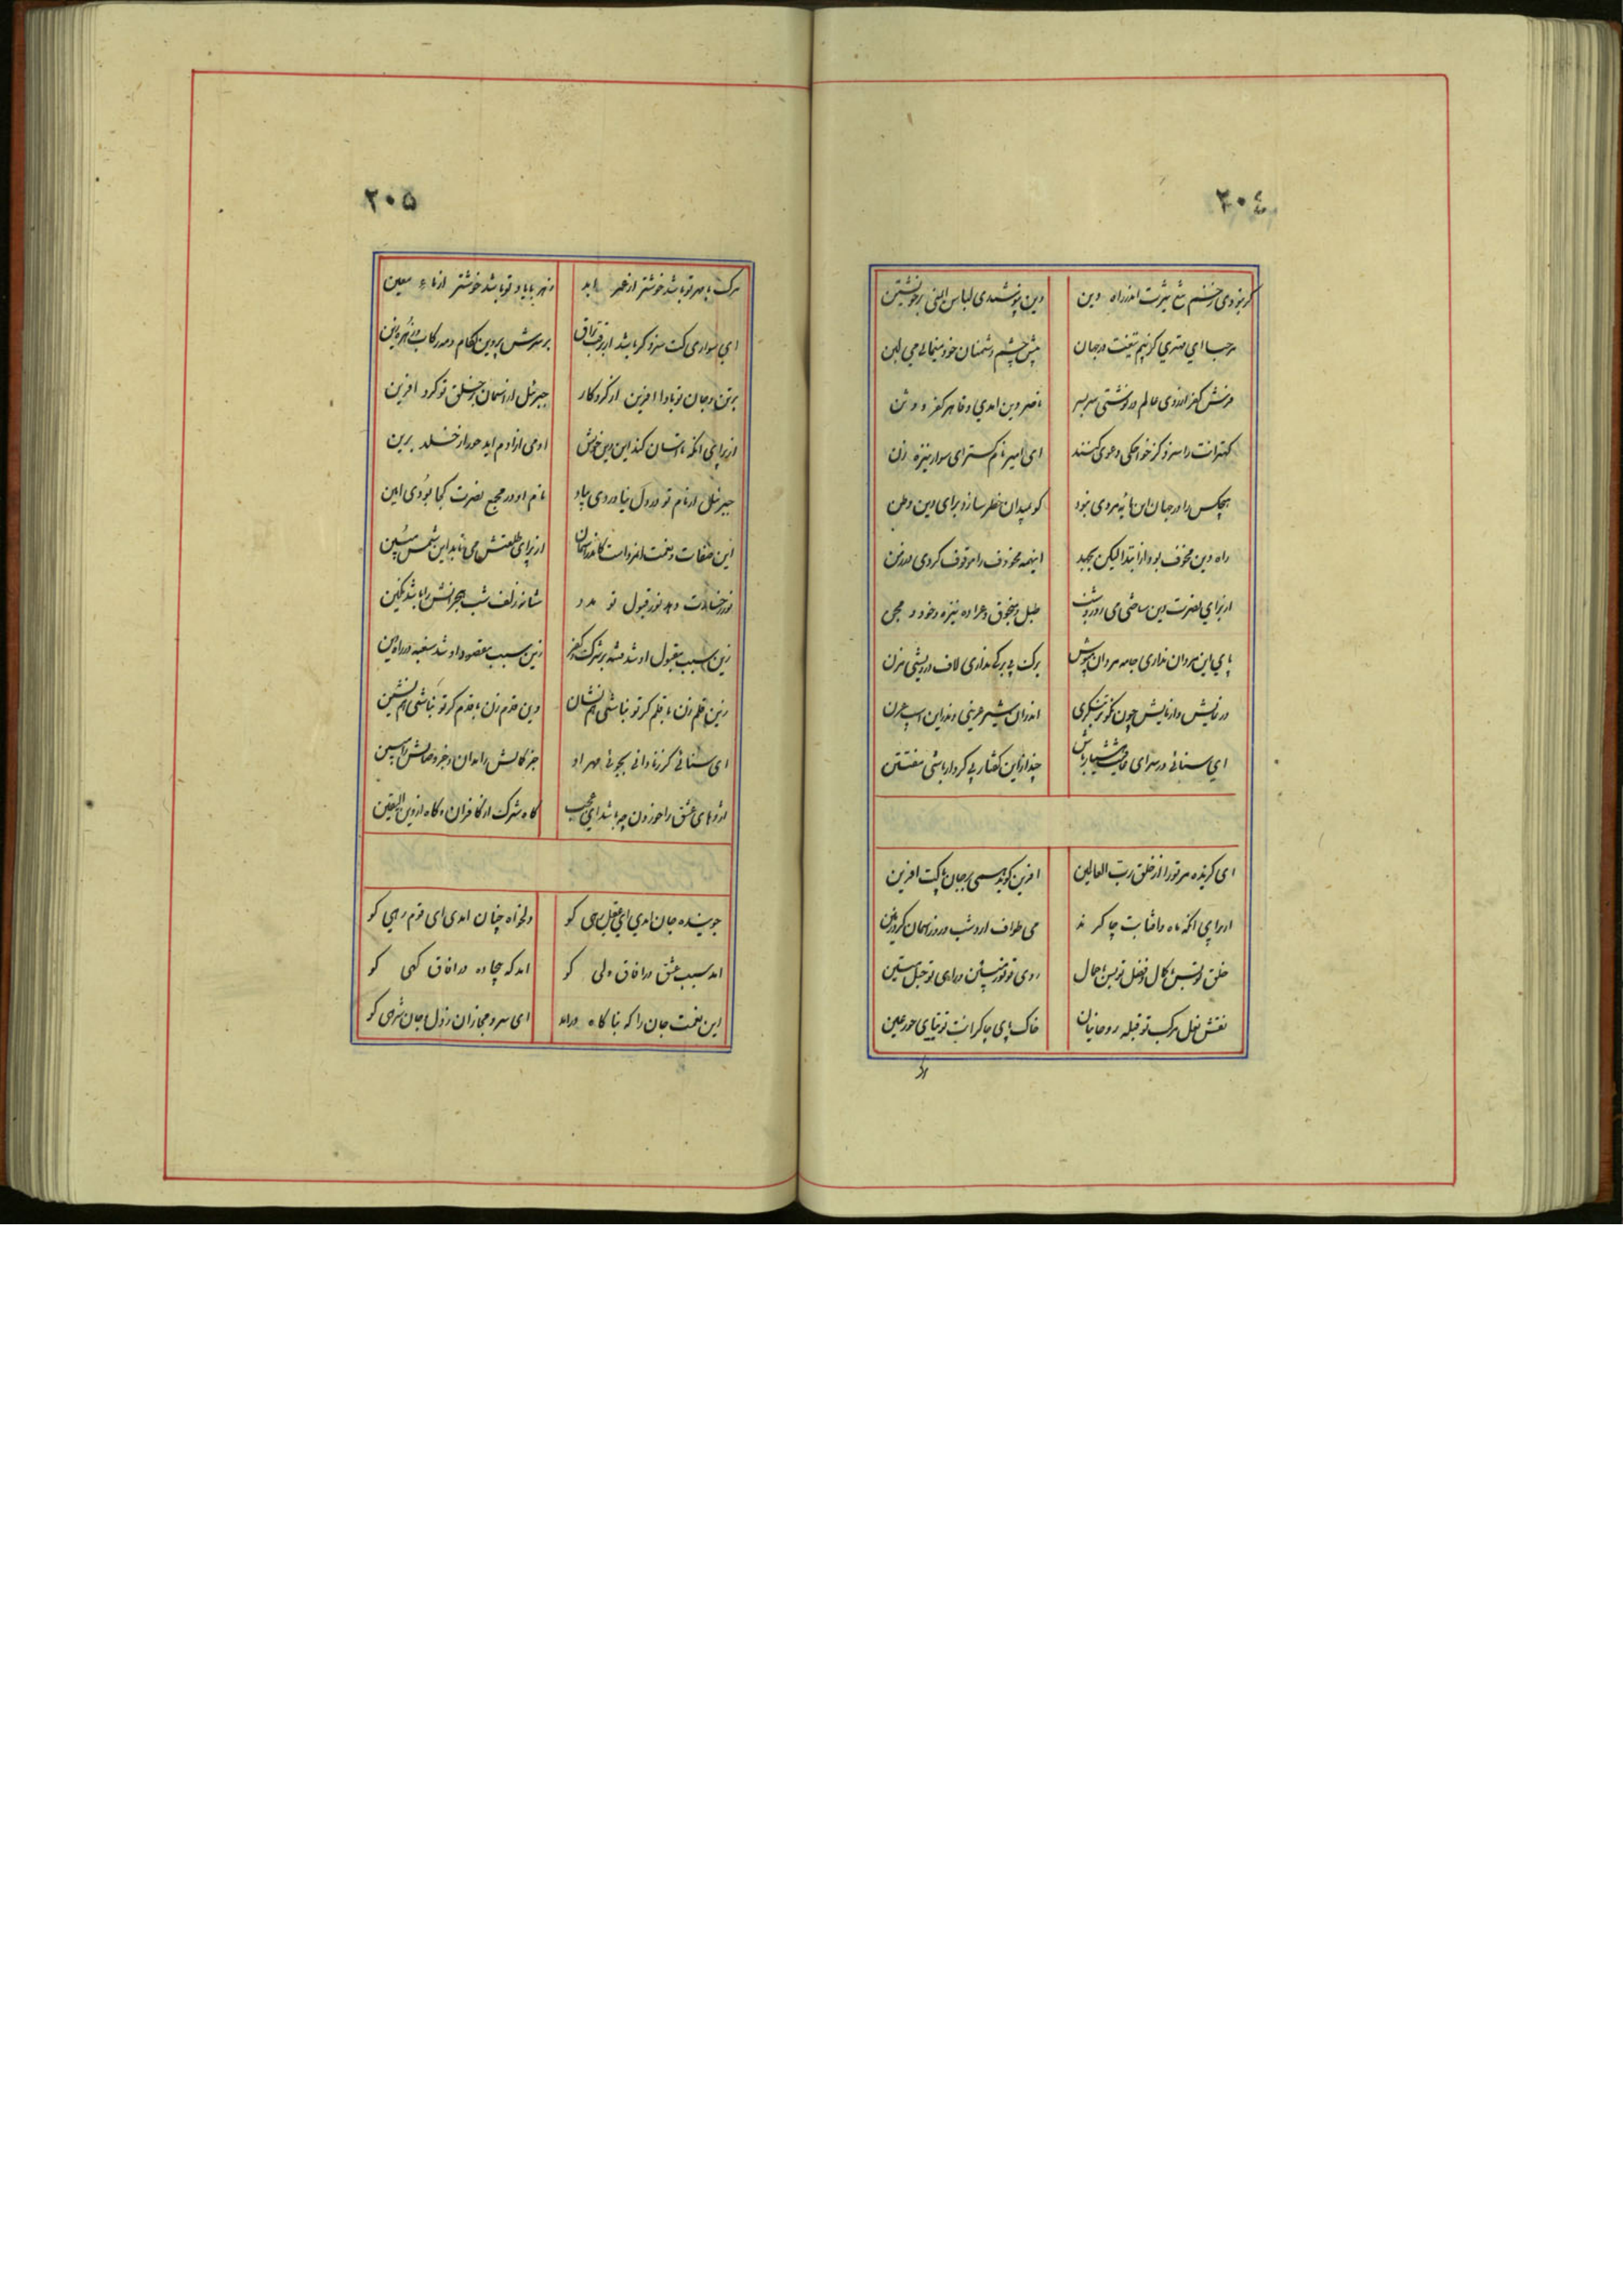 ٢٠٤
گر نبودی زخم تیغ تیزت اندر راه دین دین نپوشیدی لباس ایمنی بر خویشتن
مرحبا ای مهتری کز بیم تیغت در جهان پیش چشم دشمنان خود می
فرش کفر از روی عالم در نوشتی سربسر ناصر دین امدی و قاهر کفر و وثن
کهترانت را سزد گر خواجکی دعوی کنند ای امیر نام کستر ای سوار نیزه زن
هیچکس را در جهان این مایه مردی نبود کو بمیدان خطر سازد برای دین وطن
راه دین مخوف بود از ابتدا لیکن بجهد اینهمه مخوف را موقوف کردی در زمن
از برای نصرت دین ساختی روز و شب طبل و منجوق و عراده نیزه و خود و مجن
پای این مردان نداری جامه مردان مپوش برک بی برکی نداری لاف درویشی مزن
در نمایش وازمایش چون نکوتر بنکری اندران شیر عرینی وندرین اسب
ای سنائی در سرای هشیار باش چند ازاین گفتار بی کردار باشی مفتتن
ای گزیده مر تو را از خلق رب العالمین افرین گوید همی بر جان پاکت افرین
از برای انکه ماه و افتابت چاکرند می طواف ارد شب و روز اسمان گرد زمین
خلق تو بس با کمال و فضل تو بس با جمال روی تو نور مبین و رای تو حبل متین
نقش نعل مرکب تو قبله روحانیان خاک پای چاکرانت توتیای حور عین
مرک
٢٠٥
مرک با مهر تو باشد خوشتر از عمر ابد زهر با یاد تو باشد خوشتر از ماء معین
ای سواری کت سزد گر باشد از رتبت براق بر سرش پروین لگام و مه رکاب و زهره زین
بر تن و جان تو بادا افرین از کردکار جبرئیل از اسمان بر خلق تو کرد افرین
از برای انکه انسان کند این خویش ادمی از ادم اید حور از خلد برین
جبرئیل ار نام تو در دل نیاوردی بیاد نام او در مجمع نصرت کجا بودی امین
این صفات و نعت امرد است کاندر اسمان از برای طلعتش می تابد این شمس مبین
نور دهد نور قبول تو مدد شانه زلف شب هجرانش را باشد
زین سبب مقبول او شد بر شرک و کفر زین سبب مقصود او شد سفید در راه دین
زین قلم زن با قلم گر تو نباشی هم نشان وین قدم زن با قدم گر تو نباشی هم نشین
ای سنائی گر ز نادانی بجوئی مهر او جز کمالش را مدان و جز وصالش را مبین
اژدهای عشق را خوردن چه باشد ای عجب گاه شرک از کافران و گاه از دین الیقین
جوینده جان امدی ای عقل کو دلخواه جهان امدی ای قوم رهی کو
امد سبب عشق در افاق ولی کو امد که چاده در افاق گهی کو
این نعمت جان را که بناگاه درامد ای سرو مجازان ز دل و جان شرهی کو